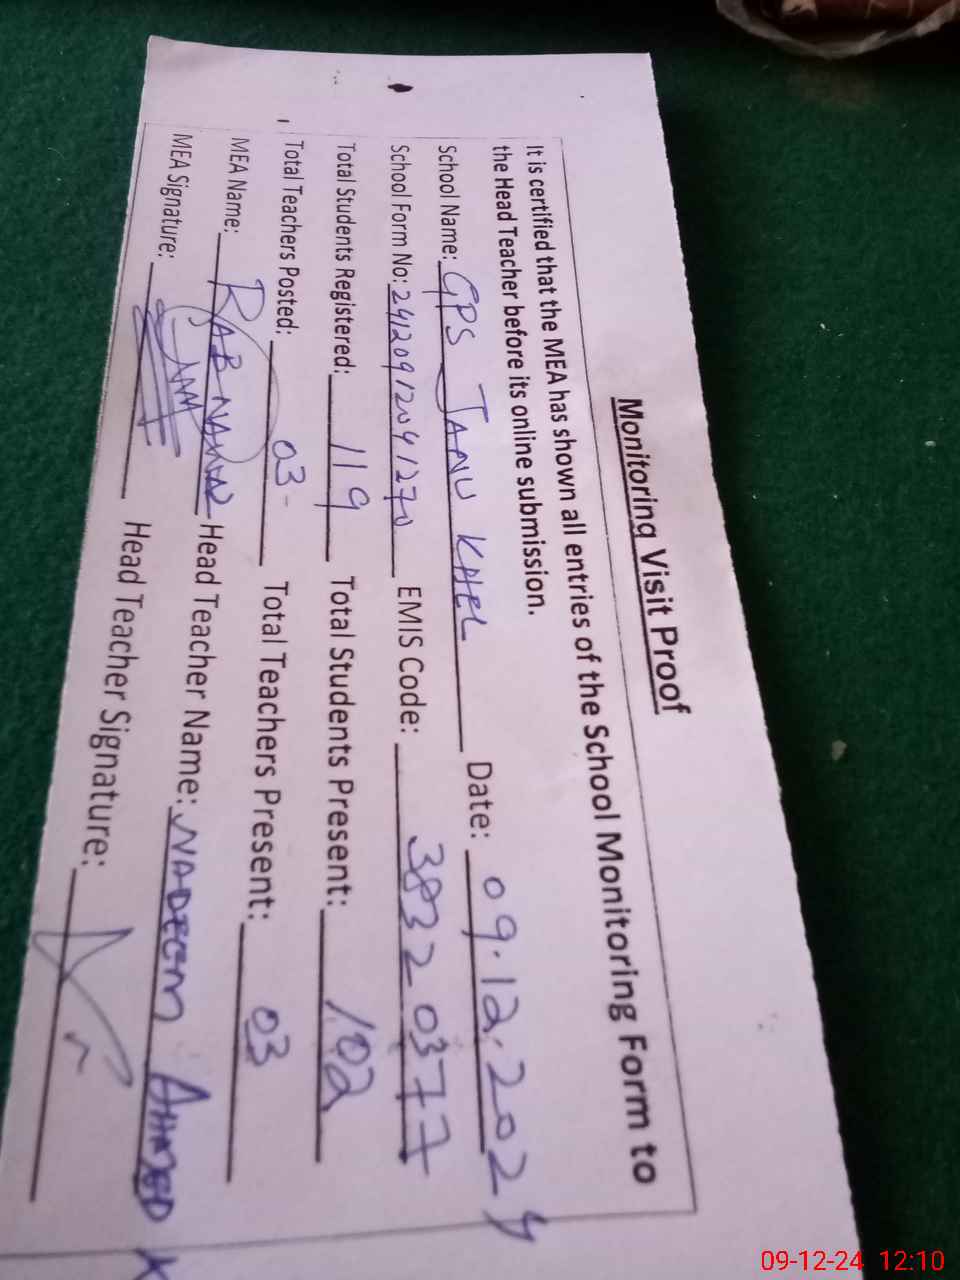 Monitoring Visit Proof
It is certified that the MEA has shown all entries of the School Monitoring Form to
the Head Teacher before its online submission.
School Name: GPS JANU KHEL Date: 09.12.2024
School Form No: 24120912041270 EMIS Code: 383220377
Total Students Registered: 119 Total Students Present: 102
Total Teachers Posted: 03 Total Teachers Present: 03
MEA Name: RAB NAWAZ Head Teacher Name: NADEEM AHMED
MEA Signature: Head Teacher Signature:
09-12-24 12:10